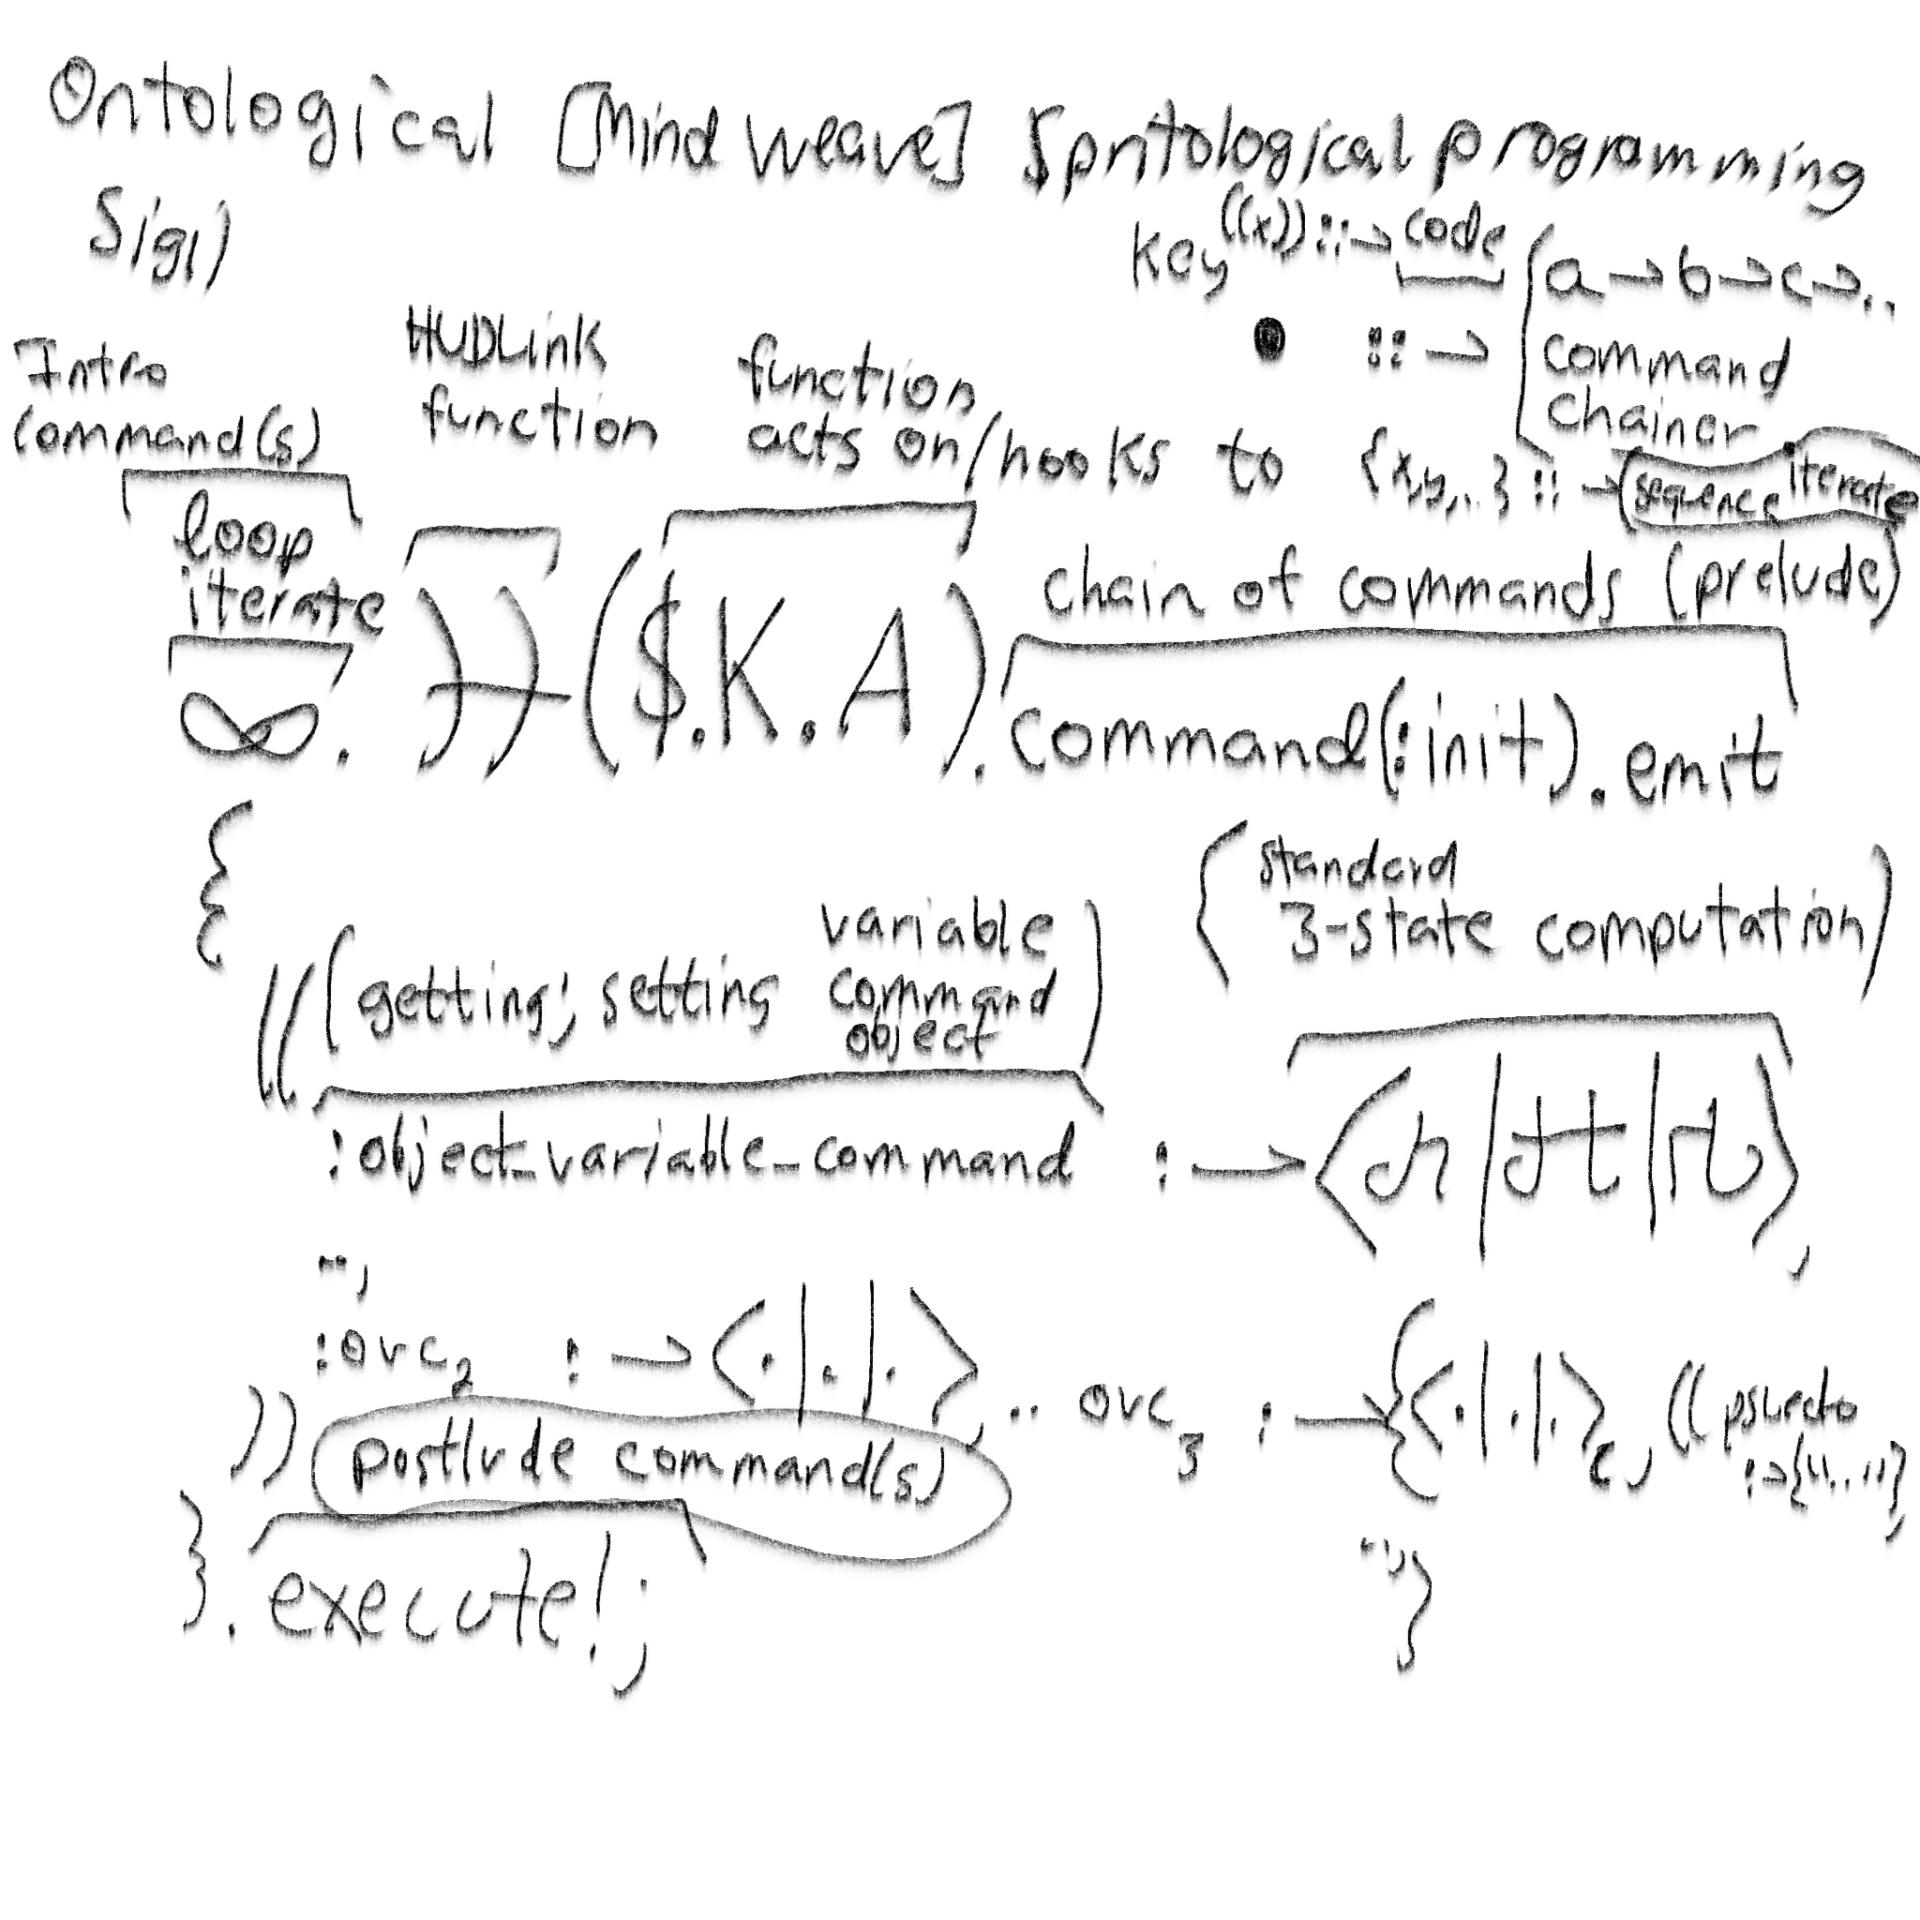 Ontological [Mind Weave] $pritological programming
Sigil
key ((x)) ::→ code
● ::→ { a→b→c→..
command
chainer
Intro
command(s)
HUDLink
function
function
acts on/hooks to {x,y,..} ::→ (sequence iterate
loop
iterate
chain of commands (prelude)
∞. ($.K.A).command(:init).emit
{
((
(getting; setting variable
command
object)
(standard
3-state computation)
:object_variable_command :→ ⟨ | | ⟩,
..,
:ovc₂ :→ ⟨.|.|.⟩, .. ovc₃ :→ {⟨.|.|.⟩, ((pseudo
:→{"..."},
))
postlude command(s)
..,}
}.execute!;